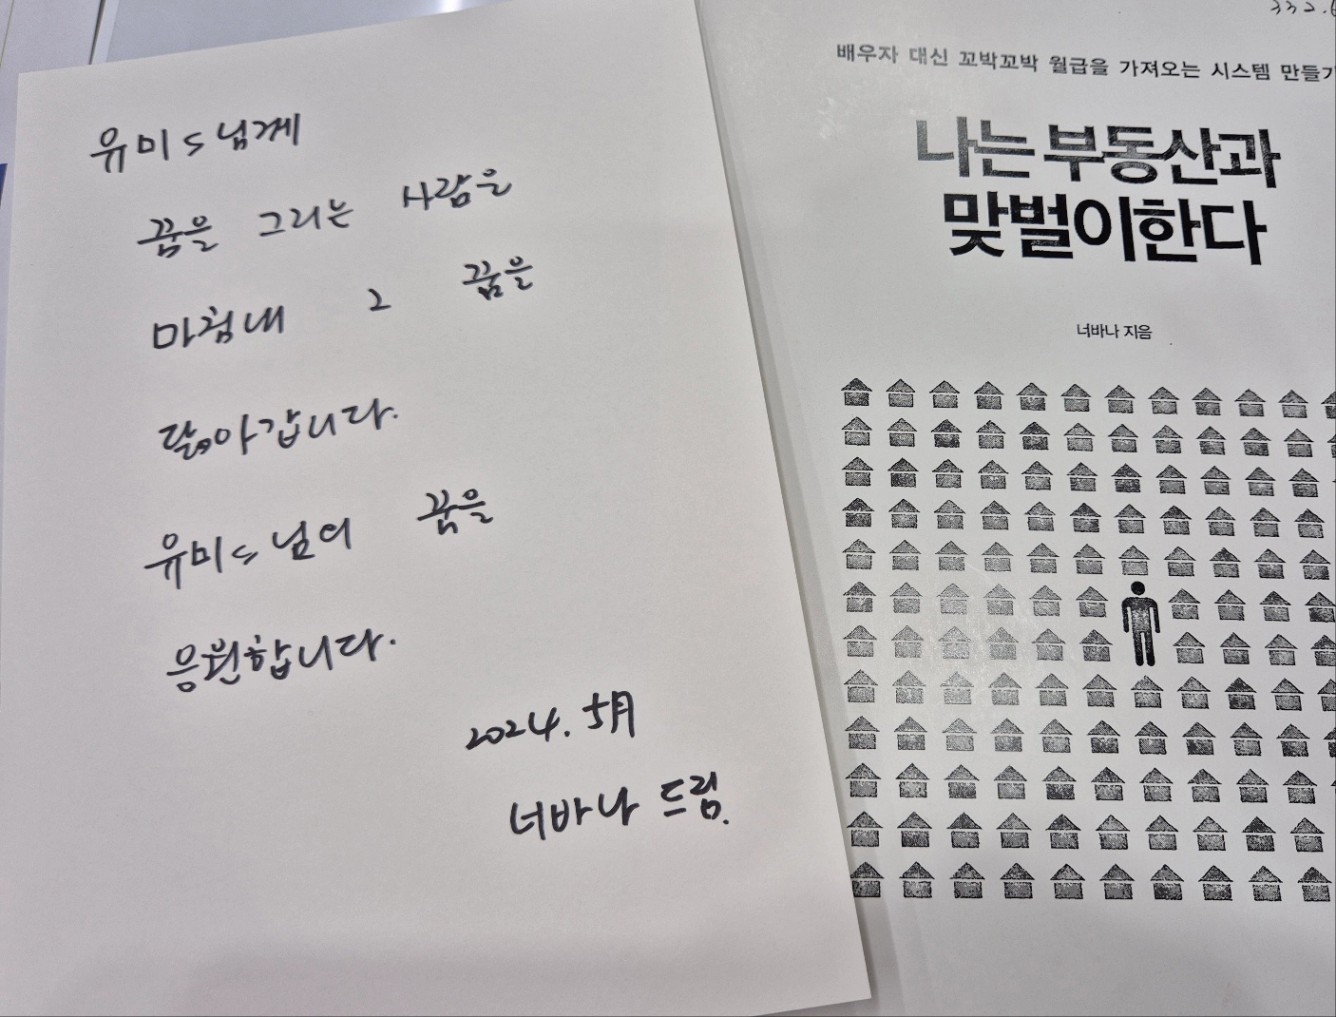 유미s님께
꿈을 그리는 사람은
마침내 그 꿈을
닮아갑니다.
유미s님의 꿈을
응원합니다.
2024. 5月
너바나 드림.
배우자 대신 꼬박꼬박 월급을 가져오는 시스템 만들기
나는 부동산과
맞벌이한다
너바나 지음